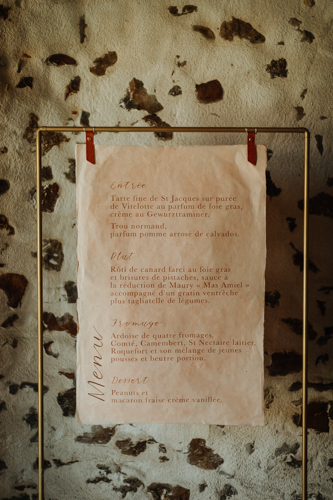 Menu
Entrée
Tarte fine de St Jacques sur purée
de Vitelotte au parfum de foie gras,
crème au Gewurztraminer.
Trou normand,
parfum pomme arrosé de calvados.
Plat
Rôti de canard farci au foie gras
et brisures de pistaches, sauce à
la réduction de Maury « Mas Amiel »
accompagné d'un gratin ventrèche
plus tagliatelle de légumes.
Fromage
Ardoise de quatre fromages,
Comté, Camembert, St Nectaire laitier,
Roquefort et son mélange de jeunes
pousses et beurre portion.
Dessert
Peanuts et
macaron fraise crème vanillée.